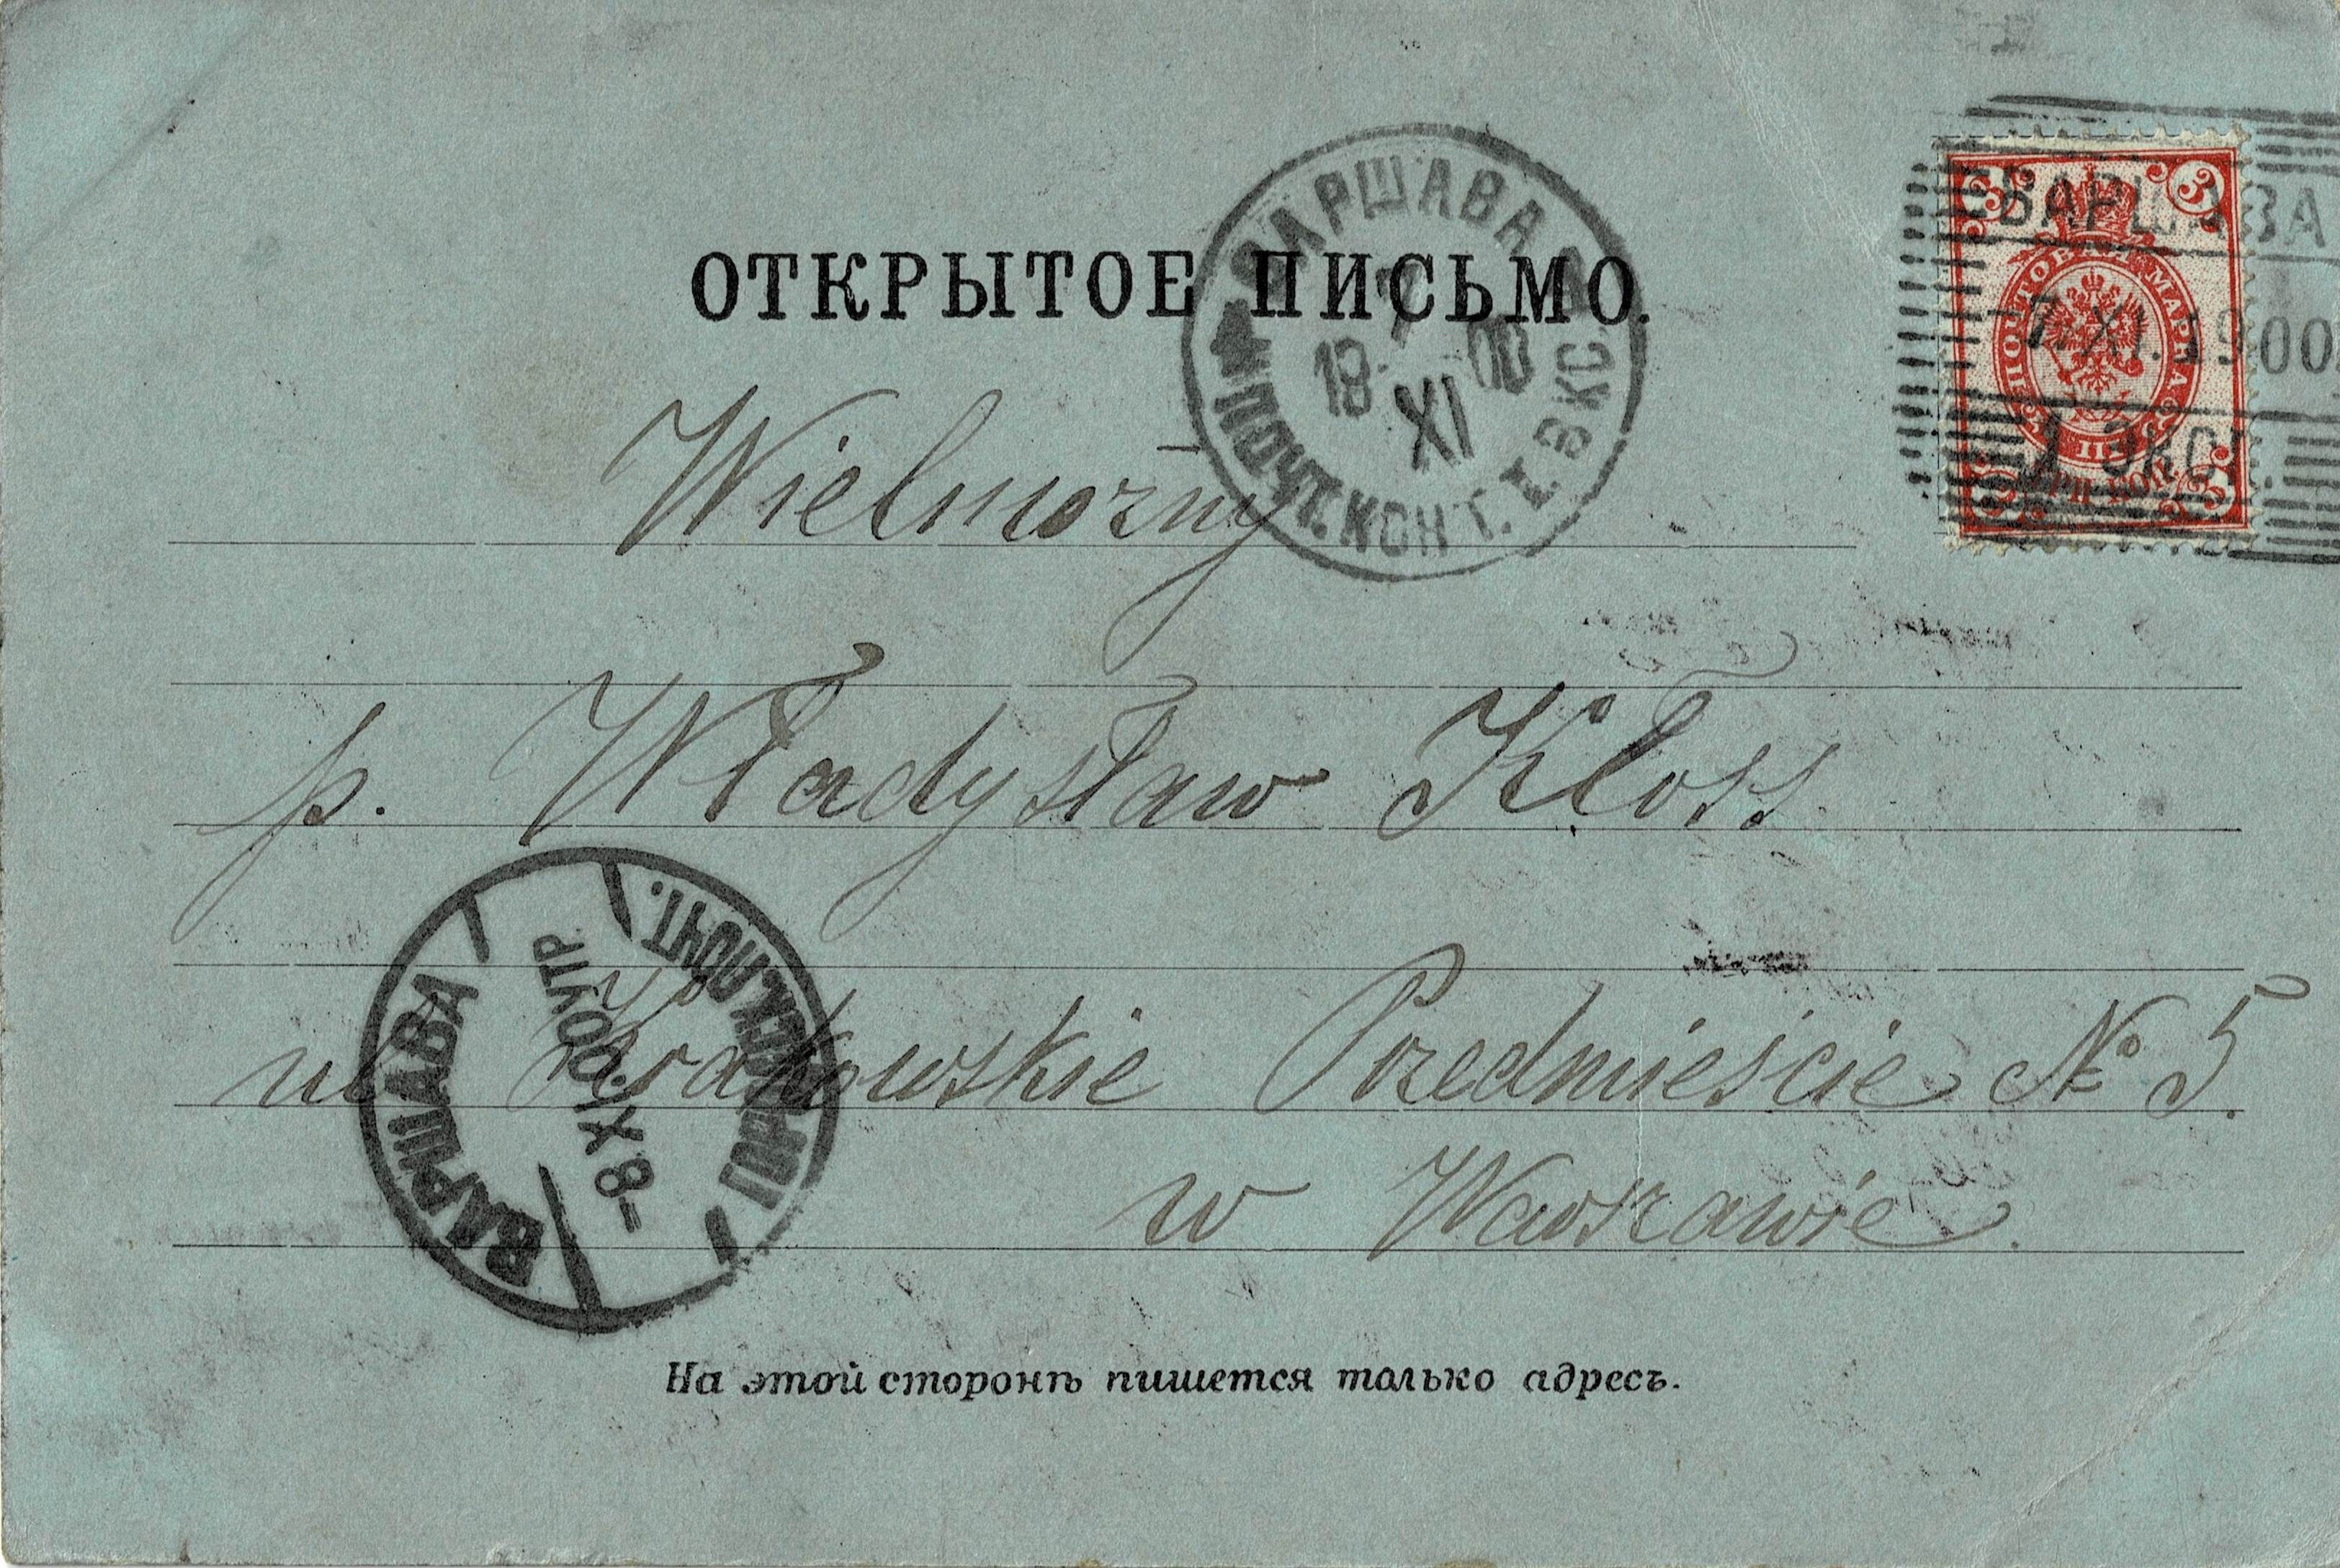 ОТКРЫТОЕ ПИСЬМО.
ВАРШАВА
7
18 00
XI
ПОЧТ. КОНТ. I. ЭКС.
ВАРШАВА
7. XI. 1900.
1 ЭКСП.
3 3
ПОЧТОВАЯ МАРКА
ТРИ КОП.
3 3
Wielmożny
p. Władysław Kloss
ul Krakowskie Przedmieście № 5.
w Warszawie.
ВАРШАВА
-8.XI.00УТР.
ГОРОДСК. ПОЧТ.
На этой сторонѣ пишется только адресъ.